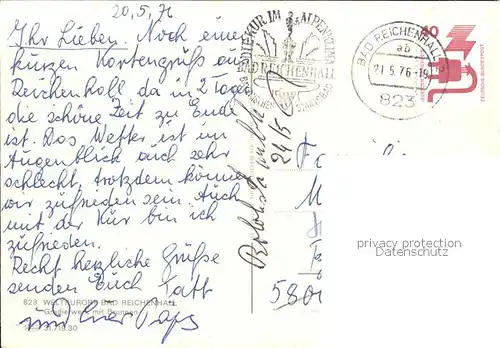 20.5.76
Ihr Lieben. Noch einen
kurzen Kartengruß aus
Reichenhall da in 2 Tagen
die schöne Zeit zu Ende
ist. Das Wetter ist im
Augenblick auch sehr
schlecht, trotzdem können
wir zufrieden sein. Auch
mit der Kur bin ich
zufrieden.
Recht herzliche Grüße
senden Euch
und Euer Papa
823 WELTKURORT BAD REICHENHALL
Gradierwerk mit Brunnen
31.719.30
KUR IM ALPENKLIMA
BAD REICHENHALL
BAD REICHENHALL
ab
21.5.76-19
823
40
DEUTSCHE BUNDESPOST
24/5
privacy protection
Datenschutz